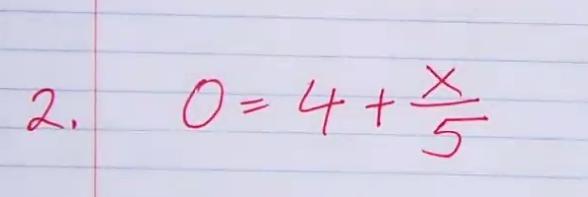 2. 0 = 4 + x/5